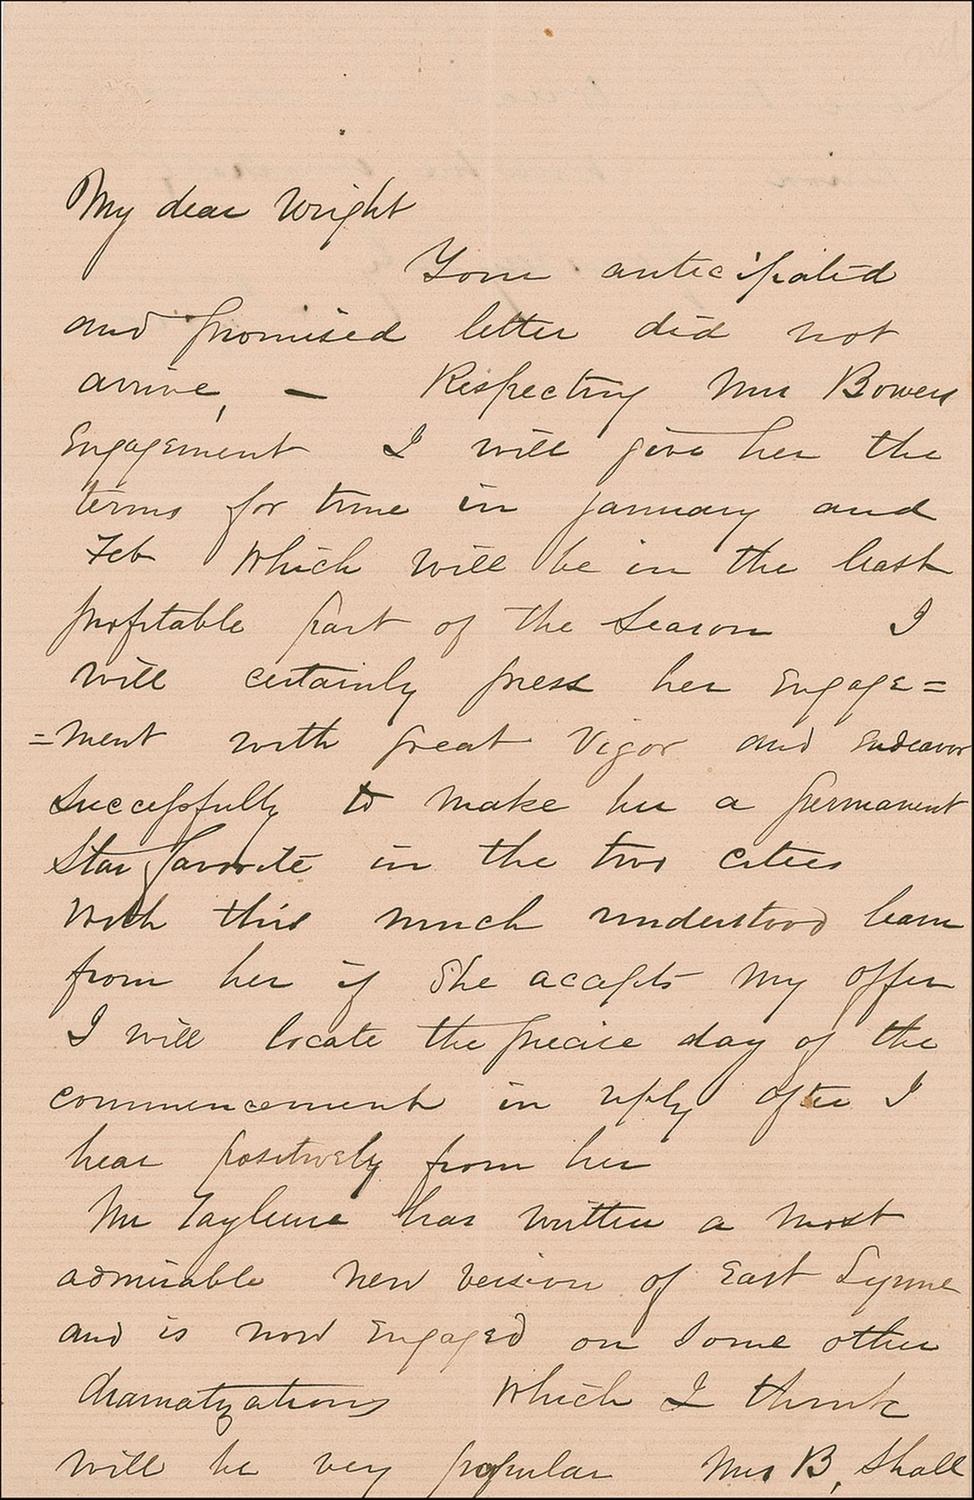 My dear Wright
Your anticipated
and promised letter did not
arrive, — Respecting Mrs Bowers
Engagement I will give her the
terms for time in January and
Feb which will be in the least
profitable part of the Season I
will certainly press her Engage=
=ment with great Vigor and Endeavor
Successfully to make her a permanent
Star favorite in the two cities
With this much understood learn
from her if She accepts my offer
I will locate the precise day of the
commencement in reply after I
hear positively from her
Mr Tayleure has written a most
admirable new version of East Lynne
and is now Engaged on Some other
dramatizations which I think
will be very popular Mrs B, Shall